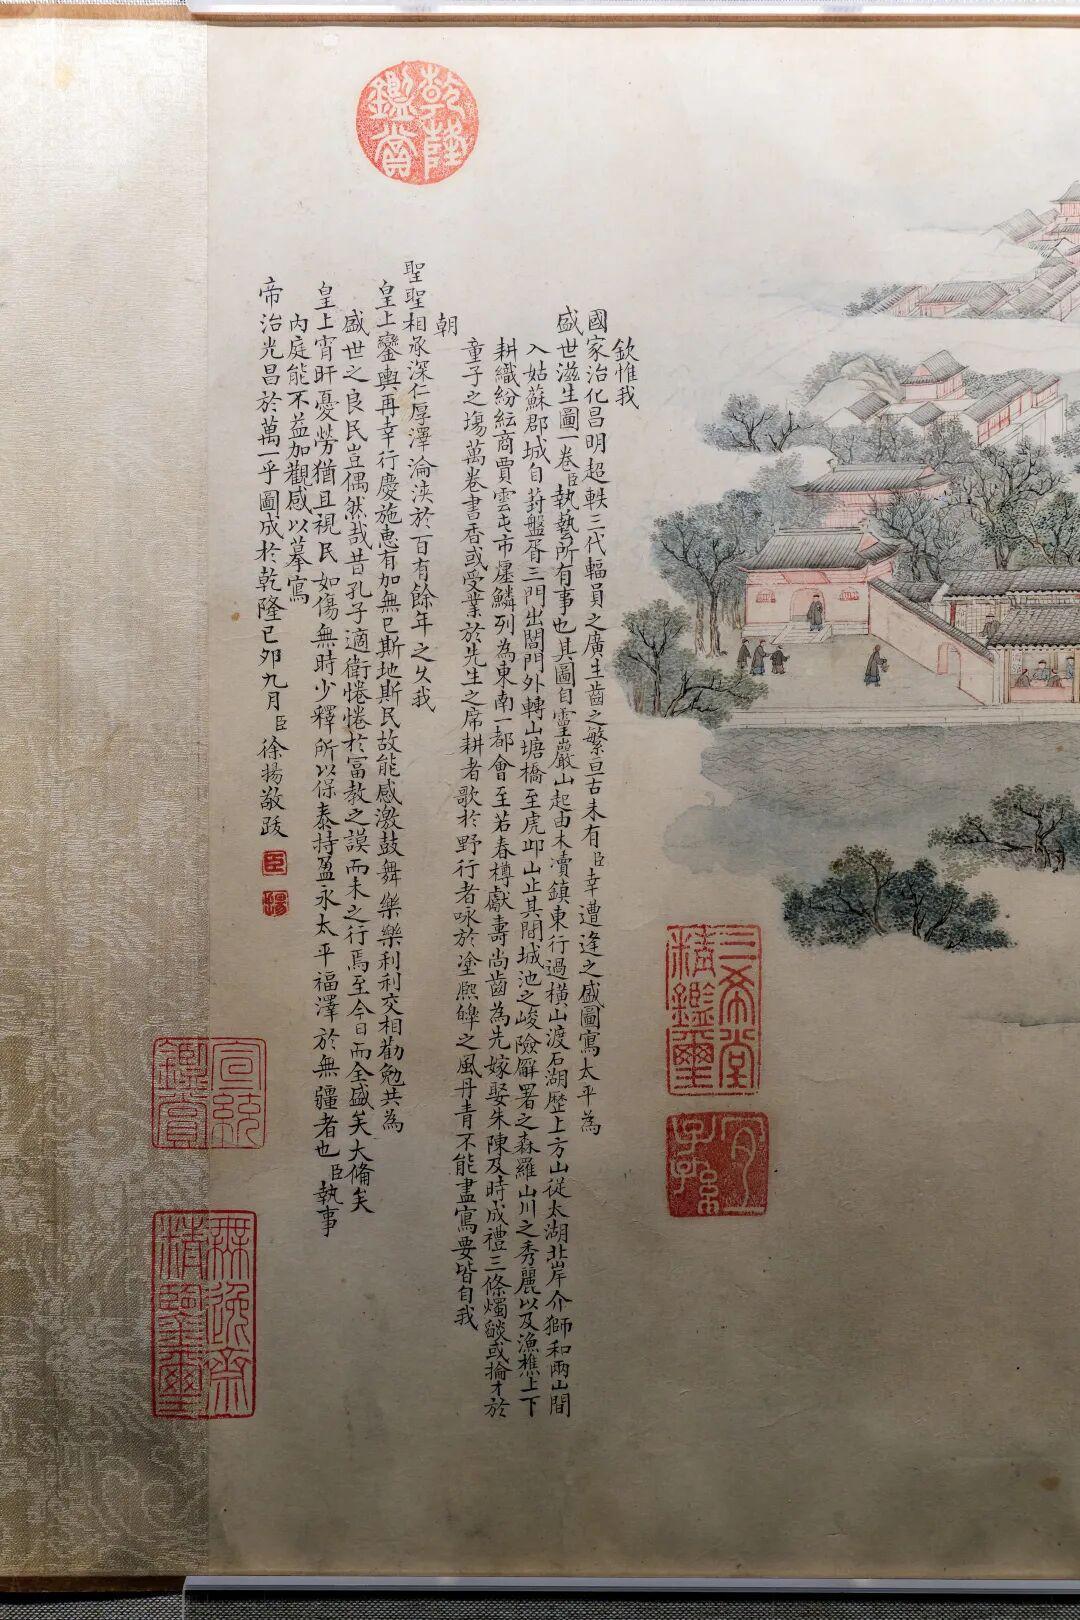 乾隆
鑑賞
欽惟我
國家治化昌明超軼三代輻員之廣生齒之繁亘古未有臣幸遭逢之盛圖寫太平為
盛世滋生圖一卷臣執藝所有事也其圖自靈巖山起由木瀆鎮東行過橫山渡石湖歷上方山從太湖北岸介獅和兩山間
入姑蘇郡城自葑盤胥三門出閶門外轉山塘橋至虎邱山止其間城池之峻險廨署之森羅山川之秀麗以及漁樵上下
耕織紛紜商賈雲屯市廛鱗列為東南一都會至若春樽獻壽尚齒為先嫁娶朱陳及時成禮三條燭燄或掄才於
童子之塲萬卷書香或受業於先生之席耕者歌於野行者咏於塗熈皞之風丹青不能盡寫要皆自我
朝
聖聖相承深仁厚澤淪浹於百有餘年之久我
皇上鑾輿再幸行慶施惠有加無已斯地斯民故能感激鼓舞樂樂利利交相勸勉共為
盛世之良民豈偶然哉昔孔子適衛惓惓於富教之謨而未之行焉至今日而全盛矣大備矣
皇上宵旰憂勞猶且視民如傷無時少釋所以保泰持盈永太平福澤於無疆者也臣執事
內庭能不益加觀感以摹寫
帝治光昌於萬一乎圖成於乾隆己卯九月臣徐揚敬跋
臣
揚
三希堂
精鑑璽
宜
子孫
宣統
鑑賞
無逸齋
精鑒璽